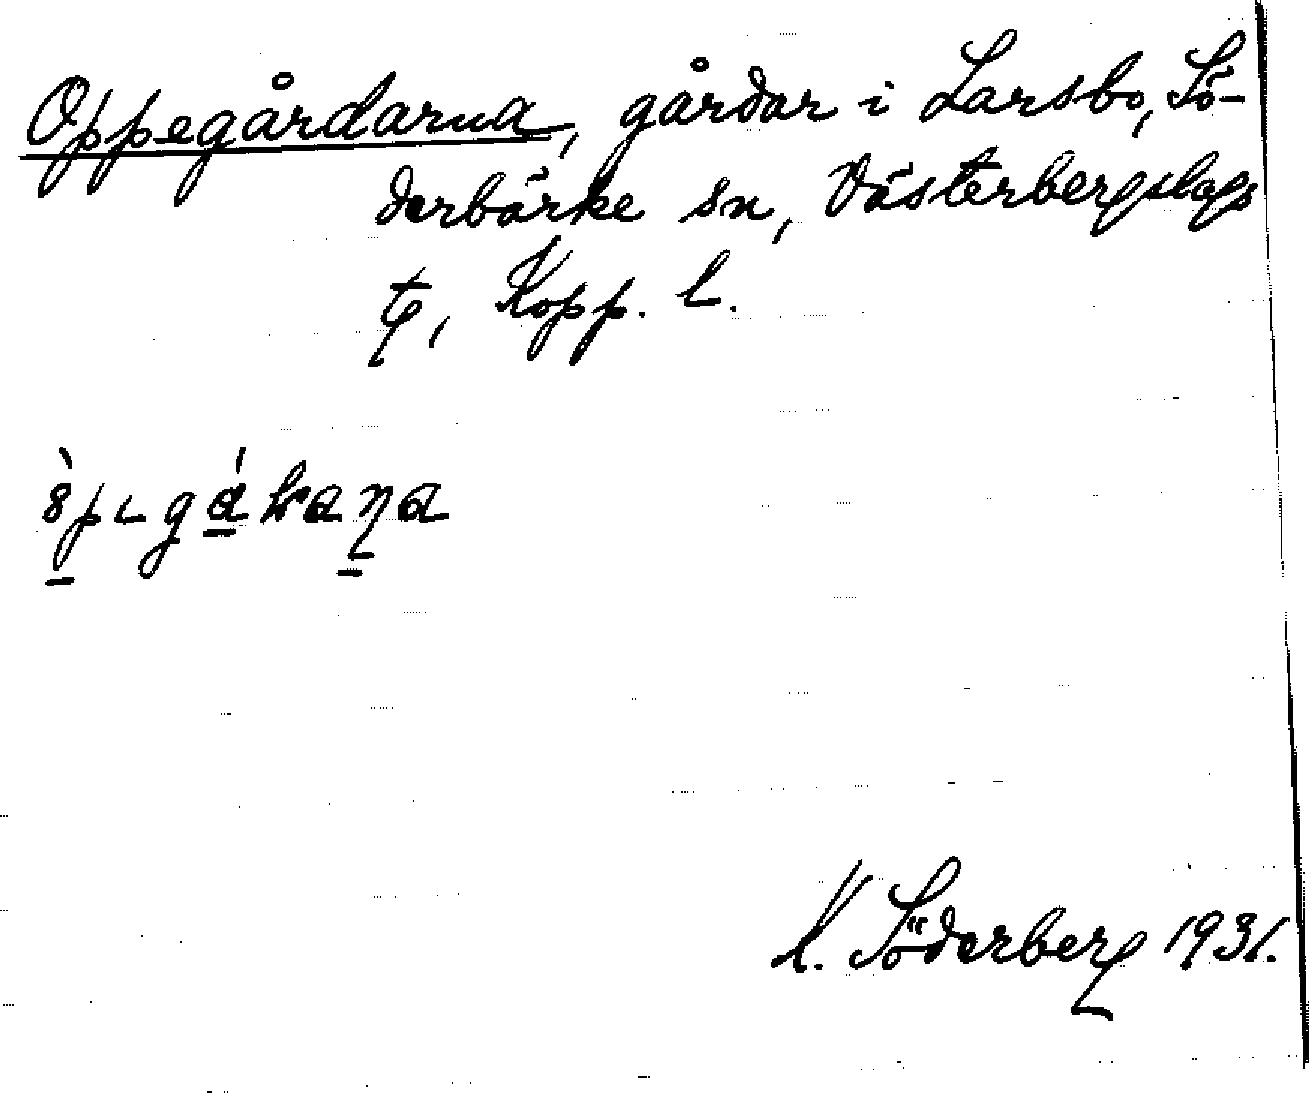 Oppegårdarna, gårdar i Larsbo, Sö-
derbärke sn, Västerbergslags
tg, Kopp. l.
K. Söderberg 1931.